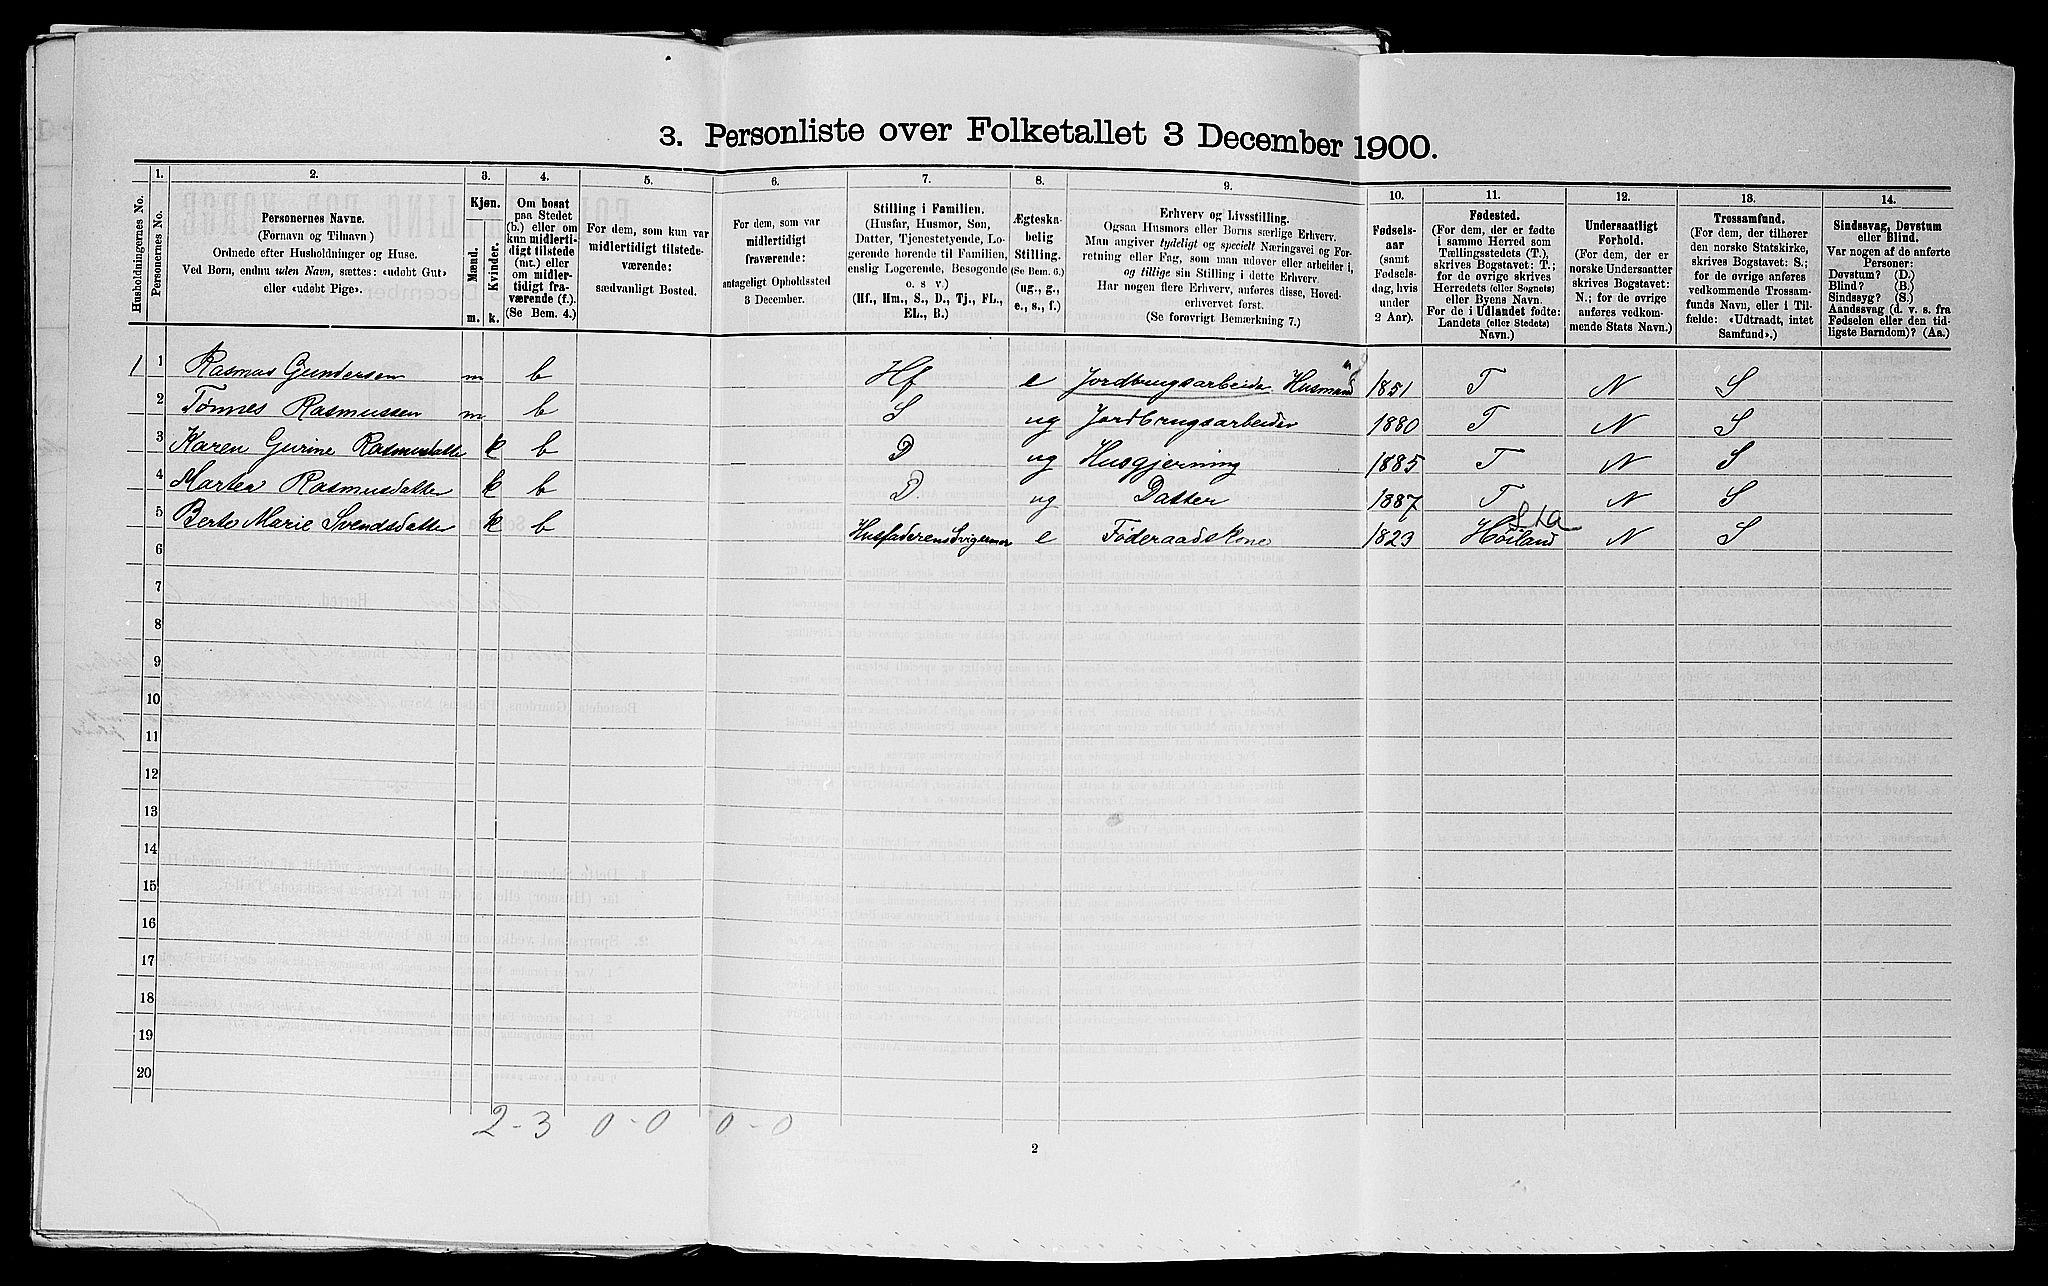 3. Personliste over Folketallet 3 December 1900.
Husholdningernes No.
1.
Personernes No.
2.
Personernes Navne.
(Fornavn og Tilnavn)
Ordnede efter Husholdninger og Huse.
Ved Børn, endnu uden Navn, sættes: «udøbt Gut»
eller «udøbt Pige».
3.
Kjøn.
Mænd.
Kvinder.
m.
k.
4.
Om bosat
paa Stedet
(b.) eller om
kun midlerti-
digt tilstede
(mt.) eller
om midler-
tidigt fra-
værende (f.).
(Se Bem. 4.)
5.
For dem, som kun var
midlertidigt tilstede-
værende:
sædvanligt Bosted.
6.
For dem, som var
midlertidigt
fraværende:
antageligt Opholdssted
3 December.
7.
Stilling i Familien.
(Husfar, Husmor, Søn,
Datter, Tjenestetyende, Lo-
gerende hørende til Familien,
enslig Logerende, Besøgende
o. s v.)
(Hf., Hm., S., D., Tj., FL.,
EL., B.)
8.
Ægteska-
belig
Stilling.
(Se Bem. 6.)
(ug., g.,
e., s., f.)
9.
Erhverv og Livsstilling.
Ogsaa Husmors eller Børns særlige Erhverv.
Man angiver tydeligt og specielt Næringsvei og For-
retning eller Fag, som man udøver eller arbeider i,
og tillige sin Stilling i dette Erhverv.
Har nogen flere Erhverv, anføres disse, Hoved-
erhvervet først.
(Se forøvrigt Bemærkning 7.)
10.
Fødsels-
aar
(samt
Fødsels-
dag, hvis
under
2 Aar).
11.
Fødested.
(For dem, der er fødte
i samme Herred som
Tællingsstedets (T.),
skrives Bogstavet: T.;
for de øvrige skrives
Herredets (eller Sognets)
eller Byens Navn.
For de i Udlandet fødte:
Landets (eller Stedets)
Navn.)
12.
Undersaatligt
Forhold.
(For dem, der er
norske Undersaatter
skrives Bogstavet:
N.; for de øvrige
anføres vedkom-
mende Stats Navn.)
13.
Trossamfund.
(For dem, der tilhører
den norske Statskirke,
skrives Bogstavet: S.;
for de øvrige anføres
vedkommende Trossam-
funds Navn, eller i Til-
fælde: «Udtraadt, intet
Samfund».)
14.
Sindssvag, Døvstum
eller Blind.
Var nogen af de anførte
Personer:
Døvstum? (D.)
Blind? (B.)
Sindssyg? (S.)
Aandssvag (d. v. s. fra
Fødselen eller den tid-
ligste Barndom)? (Aa.)
1 1 Rasmus Gundersen m b Hf e Jordbrugsarbeider Husmand 1851 T N S
2 Tønnes Rasmussen m b S ug Jordbrugsarbeider 1880 T N S
3 Karen Gurine Rasmusdatter k b D ug Husgjerning 1885 T N S
4 Marten Rasmusdatter k b D. ug Datter 1887 T N S
5 Berte Marie Svendsdatter k b Husfaderens Svigermor e Føderaadskone 1823 Høiland N S
6
7
8
9
10
11
12
13
14
15
16
17
18
19
20
2-3 0-0 0-0
2